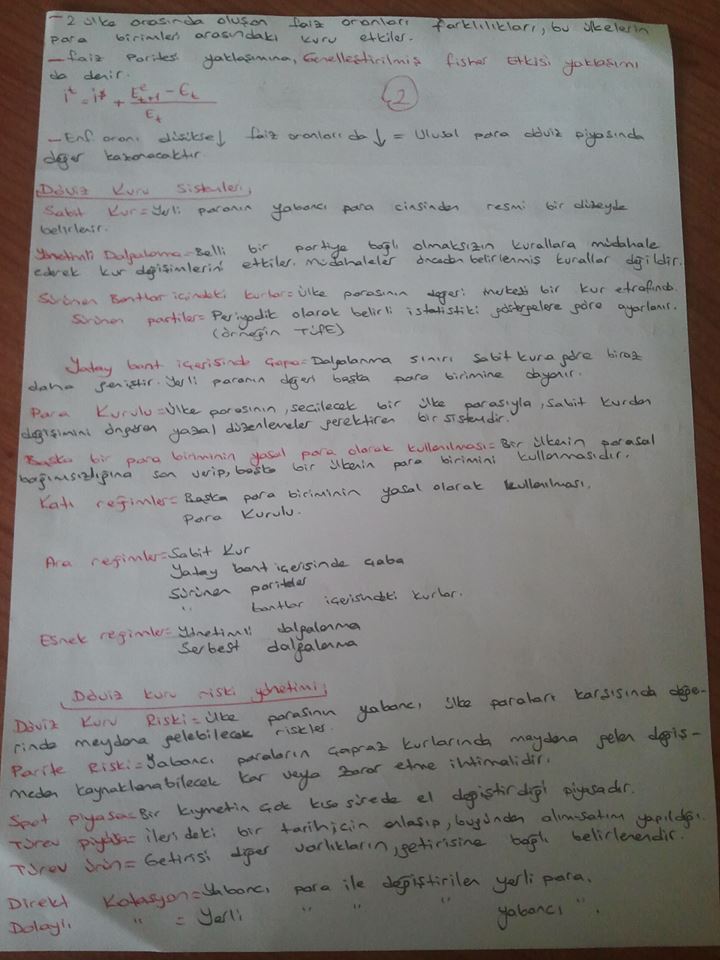 - 2 ülke arasında oluşan faiz oranları farklılıkları, bu ülkelerin
para birimleri arasındaki kuru etkiler.
- faiz Paritesi yaklaşımına, Genelleştirilmiş fisher Etkisi yaklaşımı
da denir.
2
- Enf. oranı düşükse↓ faiz oranları da ↓ = Ulusal para döviz piyasında
değer kazanacaktır.
Döviz Kuru Sistemleri;
Sabit Kur = Yerli paranın yabancı para cinsinden resmi bir düzeyde
belirlenir.
Yönetimli Dalgalanma = Belli bir partiye bağlı olmaksızın kurallara müdahale
ederek kur değişimlerini etkiler. müdahaleler önceden belirlenmiş kurallar değildir.
Sürünen Bantlar içindeki kurlar = ülke parasının değeri merkezi bir kur etrafında.
Sürünen partiler = Periyodik olarak belirli istatistiki göstergelere göre ayarlanır.
(örneğin TÜFE)
Yatay bant içerisinde Çapa = Dalgalanma sınırı sabit kura göre biraz
daha geniştir. Yerli paranın değeri başka para birimine dayanır.
Para Kurulu = ülke parasının, seçilecek bir ülke parasıyla, sabit kurdan
değişimini öngören yazal düzenlemeler gerektiren bir sistemdir.
Başka bir para biriminin yasal para olarak kullanılması = Bir ülkenin parasal
bağımsızlığına son verip, başka bir ülkenin para birimini kullanmasıdır.
Katı reğimler = Başka para biriminin yasal olarak kullanılması.
Para Kurulu.
Ara reğimler = Sabit Kur
Yatay bant içerisinde çaba
Sürünen pariteler
" bantlar içerisindeki kurlar.
Esnek reğimler = Yönetimli dalgalanma
Serbest dalgalanma
Döviz kuru riski yönetimi;
Döviz Kuru Riski = ülke parasının yabancı ülke paraları karşısında değe-
rinde meydana gelebilecek riskler.
Parite Riski = Yabancı paraların çapraz kurlarında meydana gelen değiş-
meden kaynaklanabilecek kar veya zarar etme ihtimalidir.
Spot piyasa = Bir kıymetin çok kısa sürede el değiştirdiği piyasadır.
Türev piyasa = ilerideki bir tarih için anlaşıp, bugünden alım-satım yapıldığı.
Türev ürün = Getirisi diğer varlıkların, getirisine bağlı belirlenendir.
Direkt Kotasyon = Yabancı para ile değiştirilen yerli para.
Dolaylı " = Yerli " " " yabancı ".